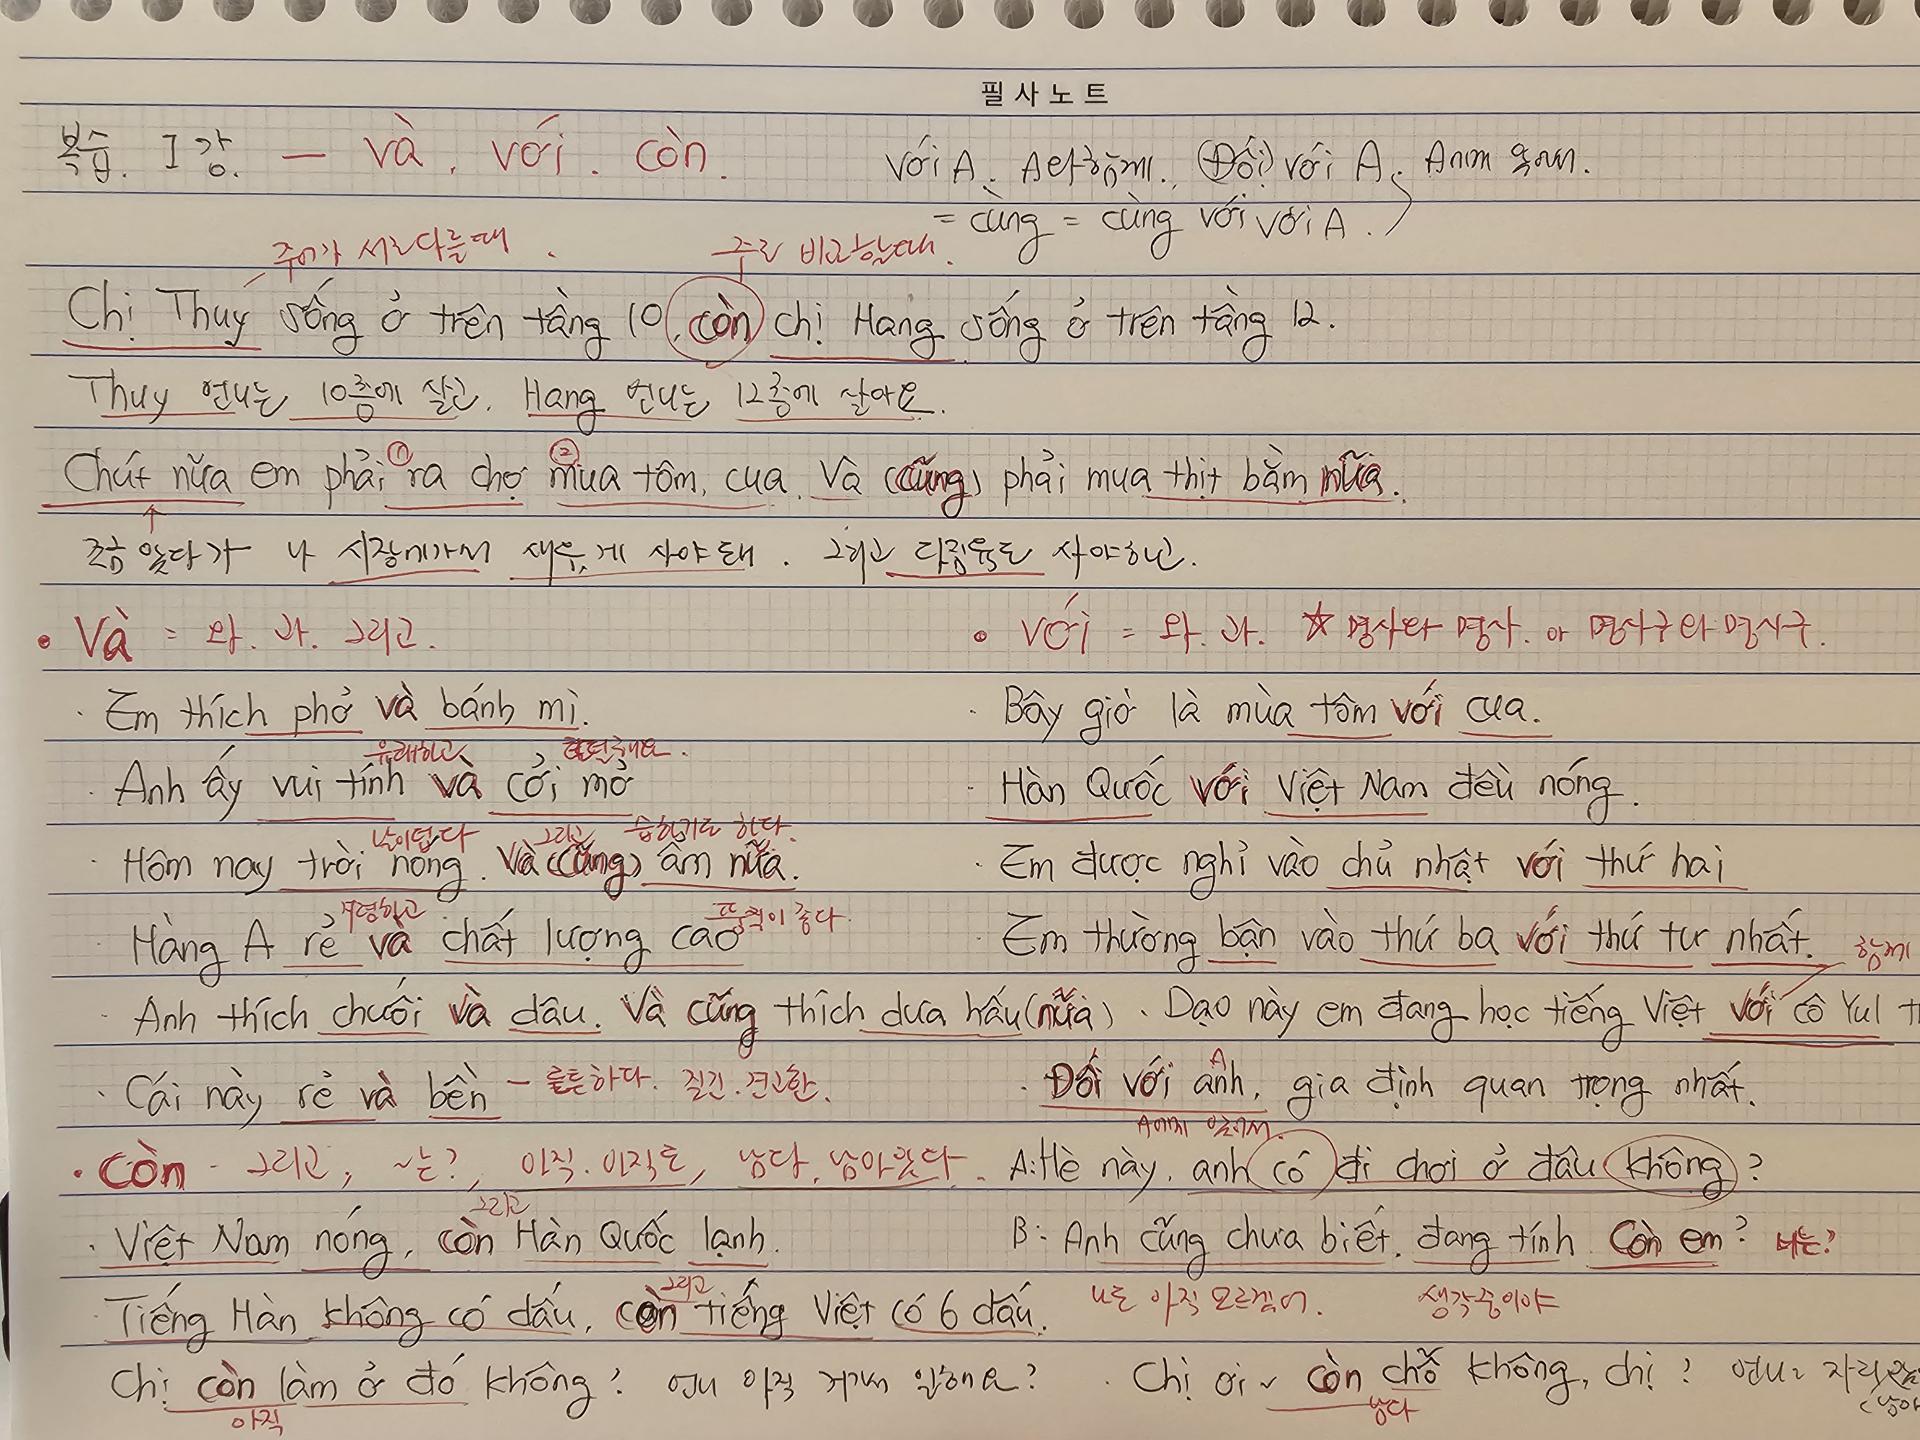 필사노트
복습. 1강. — và, với, còn.
với A. A와 함께. (Đối) với A. A에게 있어서.
= cùng = cùng với với A.
주어가 서로다를때. 주로 비교할때.
Chị Thuý sống ở trên tầng 10, còn chị Hang sống ở trên tầng 12.
Thuy 언니는 10층에 살고, Hang 언니는 12층에 살아요.
① ②
Chút nữa em phải ra chợ mua tôm, cua. Và (cũng) phải mua thịt bằm nữa.
조금 있다가 나 시장에가서 새우, 게 사야돼. 그리고 다짐육도 사야하고.
• Và = 와. 과. 그리고.
· Em thích phở và bánh mì.
유쾌하고
· Anh ấy vui tính và cởi mở
날이덥다 그리고 습하기도 하다.
· Hôm nay trời nóng. Và (cũng) âm nữa.
저렴하고 품질이 좋다.
· Hàng A rẻ và chất lượng cao
· Anh thích chuối và dâu. Và cũng thích dưa hấu (nữa)
· Cái này rẻ và bền – 튼튼하다. 질긴. 견고한.
• với = 와. 과. ☆ 명사와 명사. or 명사구와 명사구.
· Bây giờ là mùa tôm với cua.
· Hàn Quốc với Việt Nam đều nóng.
· Em được nghỉ vào chủ nhật với thứ hai
· Em thường bận vào thứ ba với thứ tư nhất.
함께
· Dạo này em đang học tiếng Việt với cô Yul
A
· Đối với anh, gia định quan trọng nhất.
A에게 있어서.
• Còn – 그리고, ~는?, 아직. 아직도, 남다. 남아있다.
그리고
· Việt Nam nóng, còn Hàn Quốc lạnh.
그리고
Tiếng Hàn không có dấu, còn tiếng Việt có 6 dấu.
Chị còn làm ở đó không? 언니 아직 거기서 일해요?
아직
A: Hè này, anh có đi chơi ở đâu không?
B: Anh cũng chưa biết. đang tính. Còn em? 너는?
나도 아직 모르겠어. 생각중이야
· Chị ơi ~ còn chỗ không, chị? 언니 자리
남다